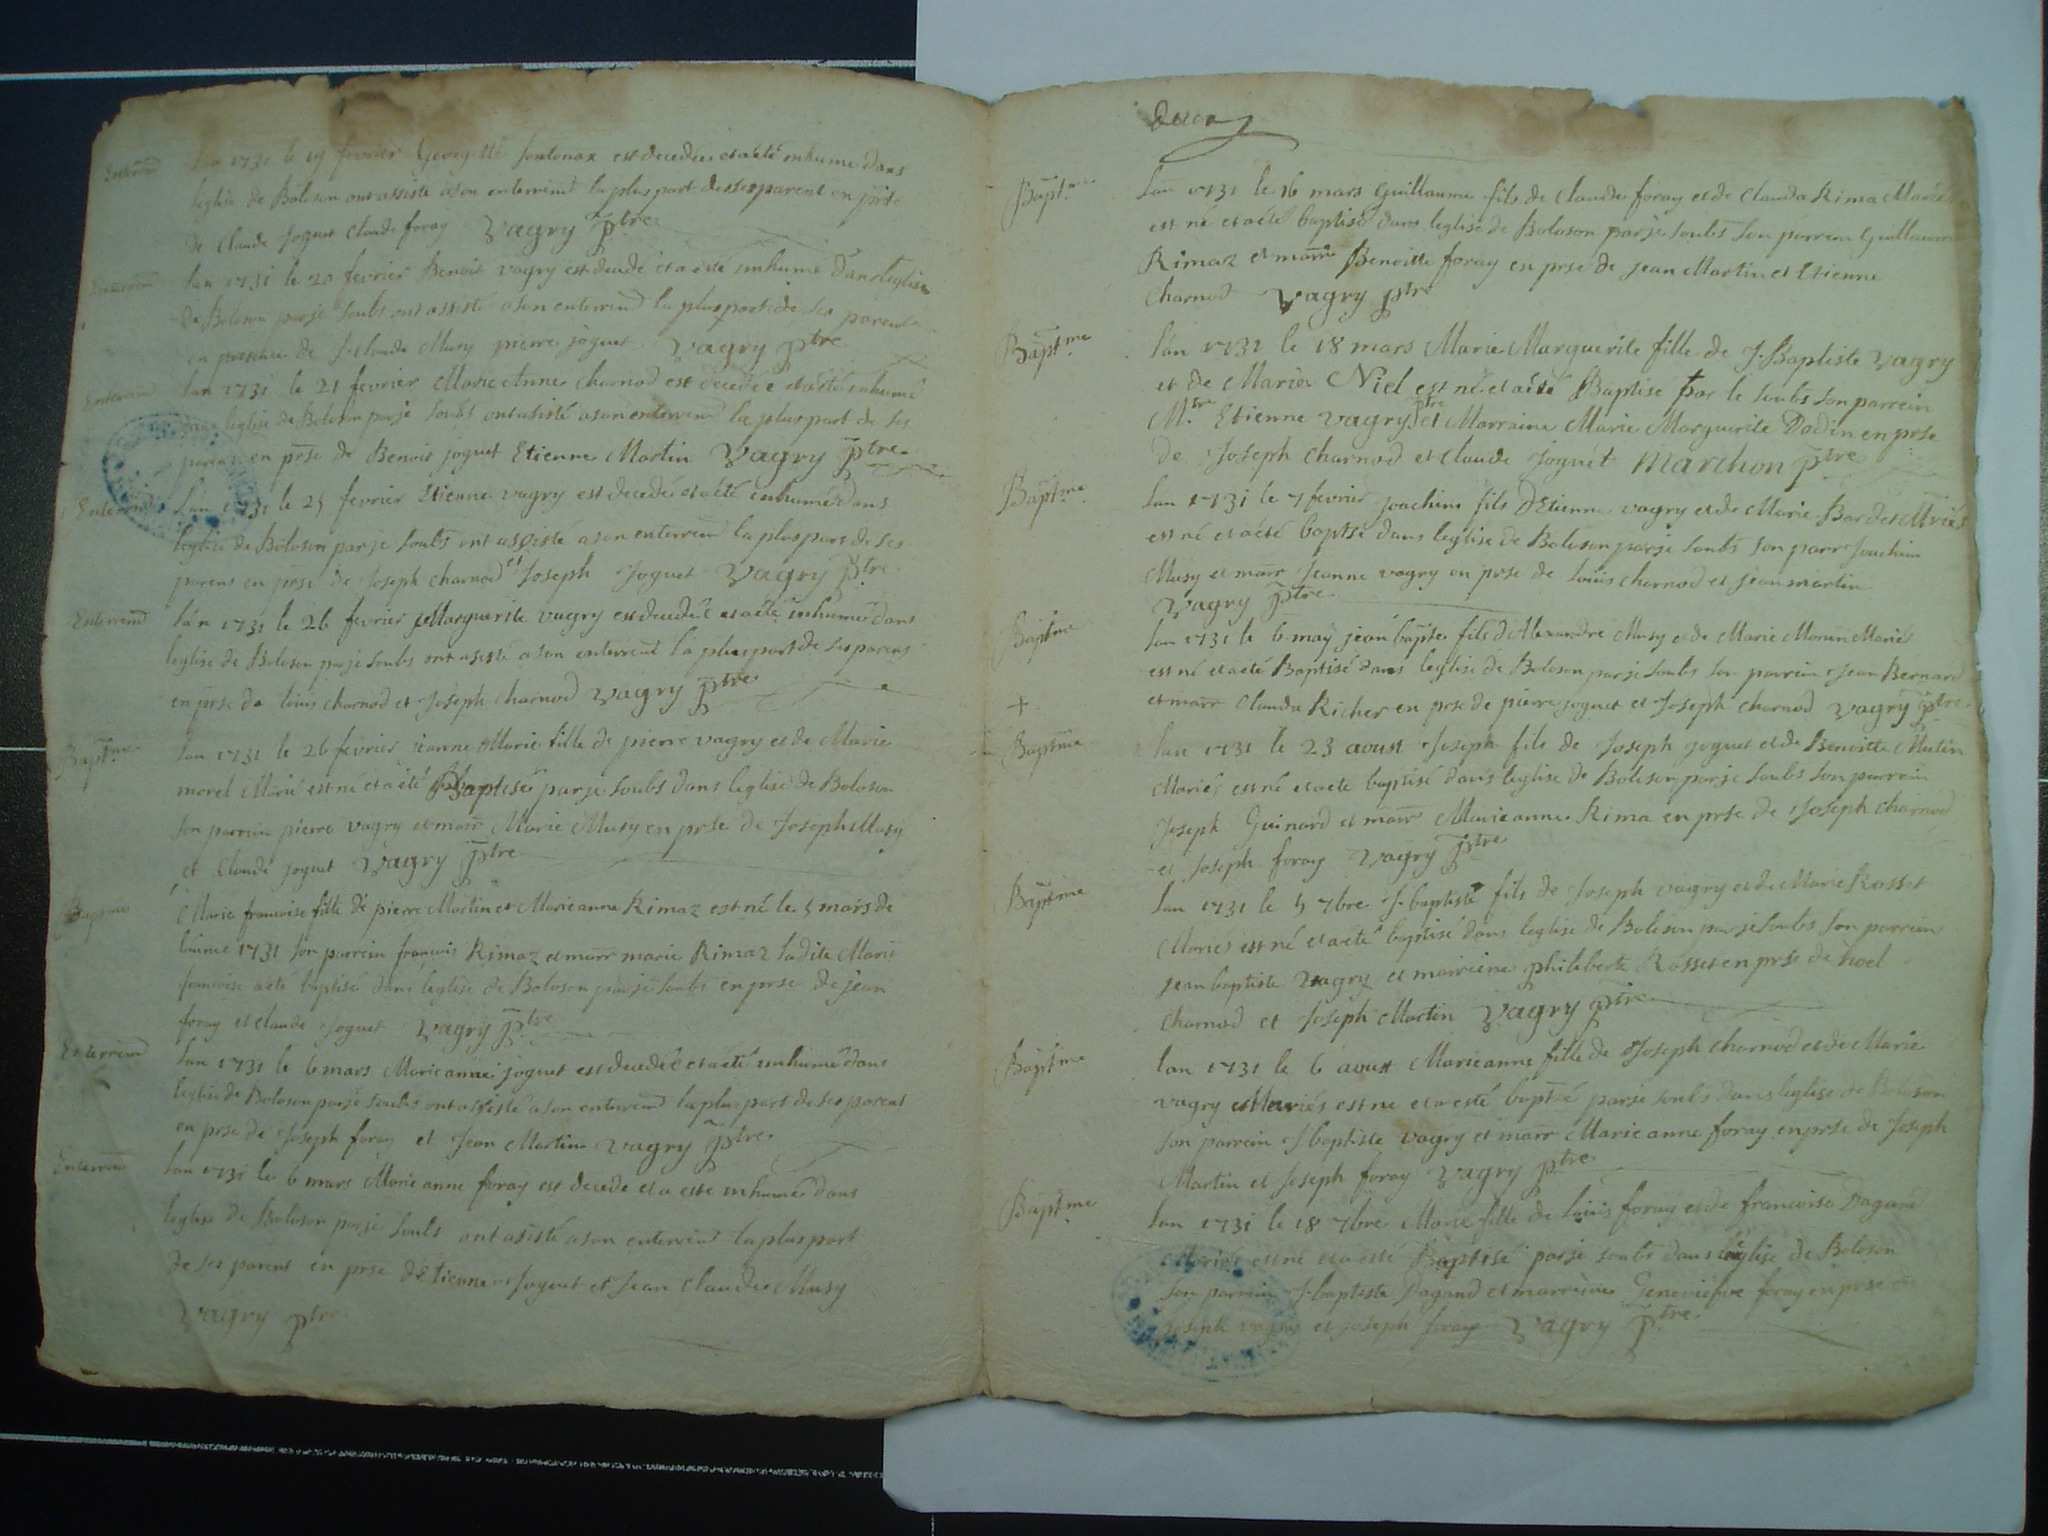 Enterremt
lan 1731 le 19 fevrier Georgette Sontonax est decedée et a été inhume dans
leglise de Boloson ont assisté a son enterremt la plus part de ses parent en prse
de Claude Joguet Claude foray Vagry ptre
Enterremt
lan 1731 le 20 fevrier Benoit vagry est decedé et a été inhumé dans leglise
de Boloson par je soubs ont assisté a son enterremt la plus part de ses parent
en presence de J. claude Musy pierre joguet Vagry ptre
Enterremt
lan 1731 le 21 fevrier Marie Anne charnod est decedée et a été inhumé
dans leglise de Boloson par je soubs ont asisté a son enterremt la plus part de ses
parens en prse de Benoit joguet Etienne Martin Vagry ptre
Enterremt
lan 1731 le 25 fevrier Etienne vagry est decedé et a été inhumé dans
leglise de Boloson par je soubs ont assisté a son enterremt la plus part de ses
parens en prse de Joseph charnod et Joseph Joguet Vagry ptre
Enterremt
lan 1731 le 26 fevrier Marguerite vagry est decedée et a été inhumé dans
leglise de Boloson par je soubs ont asisté a son enterremt la plus part de ses parens
en prse de louis charnod et Joseph charnod Vagry ptre
Baptme
lan 1731 le 26 fevrier jeanne Marie fille de pierre vagry et de Marie
morel Marié est né et a été Baptisé par je soubs dans leglise de Boloson
son parrein pierre vagry et marr Marie Musy en prse de Joseph Musy
et Claude joguet Vagry ptre
Baptme
Marie francoise fille de pierre Martin et Marie anne Rimaz est né le 5 mars de
lannee 1731 son parrein francois Rimaz et marr marie Rimaz ladite Marie
francoise a été baptisé dans leglise de Boloson par je soubs en prse de jean
foray et claude Joguet Vagry ptre
Enterremt
lan 1731 le 6 mars Marie anne joguet est decedée et a été inhumé dans
leglise de Boloson par je soubs ont assisté a son enterremt la plus part de ses parent
en prse de Joseph foray et Jean Martin Vagry ptre
Enterremt
lan 1731 le 6 mars Marie anne foray est decede et a este inhumé dans
leglise de Boloson par je soubs ont asisté a son enterremt la plus part
de ses parent en prse dEtienne Joguet et Jean Claude Musy
Vagry ptre
Baptme
lan 1731 le 16 mars Guillaume fils de Claude foray et de Clauda Rima Mariés
est né et a été baptisé dans leglise de Boloson par je soubs son parrein Guillaume
Rimaz et marr Benoitte foray en prse de jean Martin et Etienne
Charnod Vagry ptre
Baptme
lan 1731 le 18 mars Marie Marguerite fille de J. Baptiste Vagry
et de Maria Niel est né et a été Baptise par le soubs son parrein
Mtre Etienne vagry ptre et Marraine Marie Marguerite Dodin en prse
de Joseph charnod et claude Joguet Marchon ptre
Baptme
lan 1731 le 7 fevrier joachim fils dEtienne vagry et de Marie Bardet Mriés
est né et a été baptsé dans leglise de Boloson par je soubs son parr Joachim
Musy et marr Jeanne vagry en prse de louis charnod et jean martin
Vagry ptre
Baptme
lan 1731 le 6 may jean baptste fils dAlexandre Musy et de Marie Morin Mariés
est né et a été Baptisé dans leglise de Boloson par je soubs son parrein Jean Bernard
et marr Clauda Richer en prse de pierre joguet et Joseph charnod Vagry ptre
+
Baptme
lan 1731 le 23 aoust Joseph fils de Joseph joguet et de Benoitte Mutin
Mariés est né et a ete baptisé dans leglise de Boloson par je soubs son parrein
Joseph Guinard et marr Marie anne Rima en prse de Joseph charnod
et Joseph foray Vagry ptre
Baptme
lan 1731 le 5 7bre J. baptiste fils de Joseph vagry et de Marie Rosset
Mariés est né et a eté baptisé dans leglise de Boloson par je soubs son parrein
jean baptiste vagry et marreine philiberte Rosset en prse de noel
charnod et Joseph Martin Vagry ptre
Baptme
lan 1731 le 6 aoust Marie anne fille de Joseph charnod et de Marie
vagry Mariés est né et a esté baptsé par je soubs dans leglise de Boloson
son parrein J. baptiste vagry et marr Marie anne foray en prse de Joseph
Martin et Joseph foray Vagry ptre
Baptme
lan 1731 le 18 7bre Marie fille de louis foray et de francoise Dagand
Mariés est né et a esté Baptisé par je soubs dans leglise de Boloson
son parrein J. baptiste Dagand et marreine Genevieve foray en prse de
Joseph vagry et joseph foray Vagry ptre